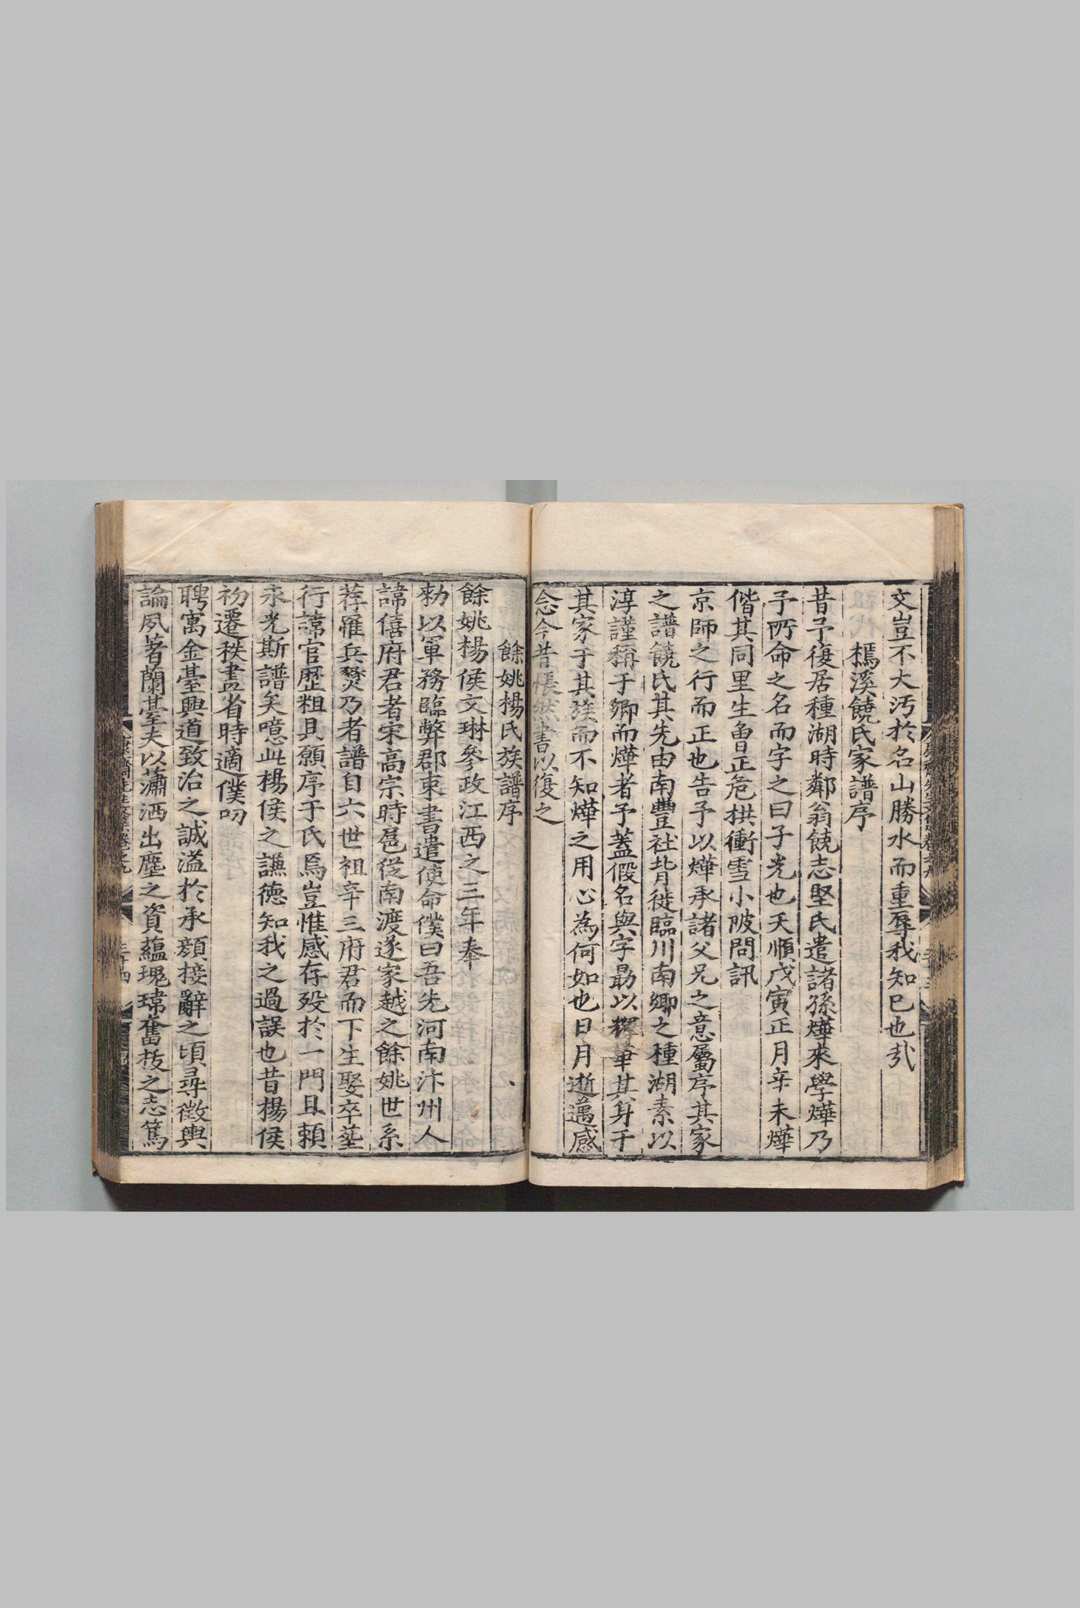 文豈不大汚於名山勝水而重辱我知己也㢤
檇溪饒氏家譜序
昔予復居種湖時鄰翁饒志堅氏遣諸孫燁來學燁乃
予所命之名而字之曰子光也天順戊寅正月辛未燁
偕其同里生魯正危拱衝雪小陂問訊
京師之行而正也告予以燁承諸父兄之意屬序其家
之譜饒氏其先由南豐社背徙臨川南鄉之種湖素以
淳謹稱于鄉而燁者予蓋假名與字勗以釋華其身于
其家于其族而不知燁之用心為何如也日月逝邁感
念今昔悵然書以復之
餘姚楊氏族譜序
餘姚楊侯文琳參政江西之三年奉
勑以軍務臨弊郡柬書遣使命僕曰吾先河南汴州人
諱僖府君者宋高宗時扈從南渡遂家越之餘姚世系
荐罹兵燹乃者譜自六世祖辛三府君而下生娶卒塟
行諱官歷粗具願序于氏焉豈惟感存歿於一門且賴
永光斯譜矣噫此楊侯之謙德知我之過誤也昔楊侯
初遷秩畫省時適僕叨
聘寓金臺興道致治之誠溢於承顏接辭之頃尋徵輿
論夙著蘭臺夫以瀟洒出塵之資蘊瑰瑋奮拔之志篤